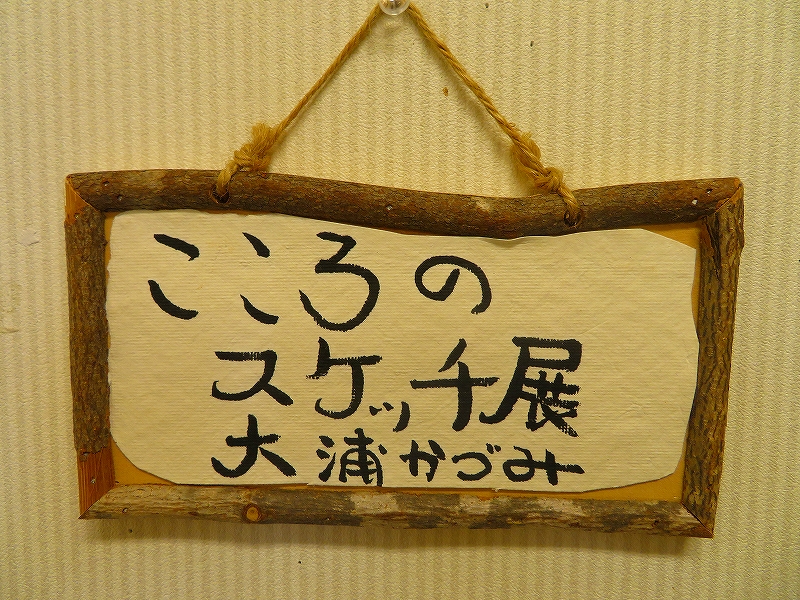 こころの
スケッチ展
大浦かづみ